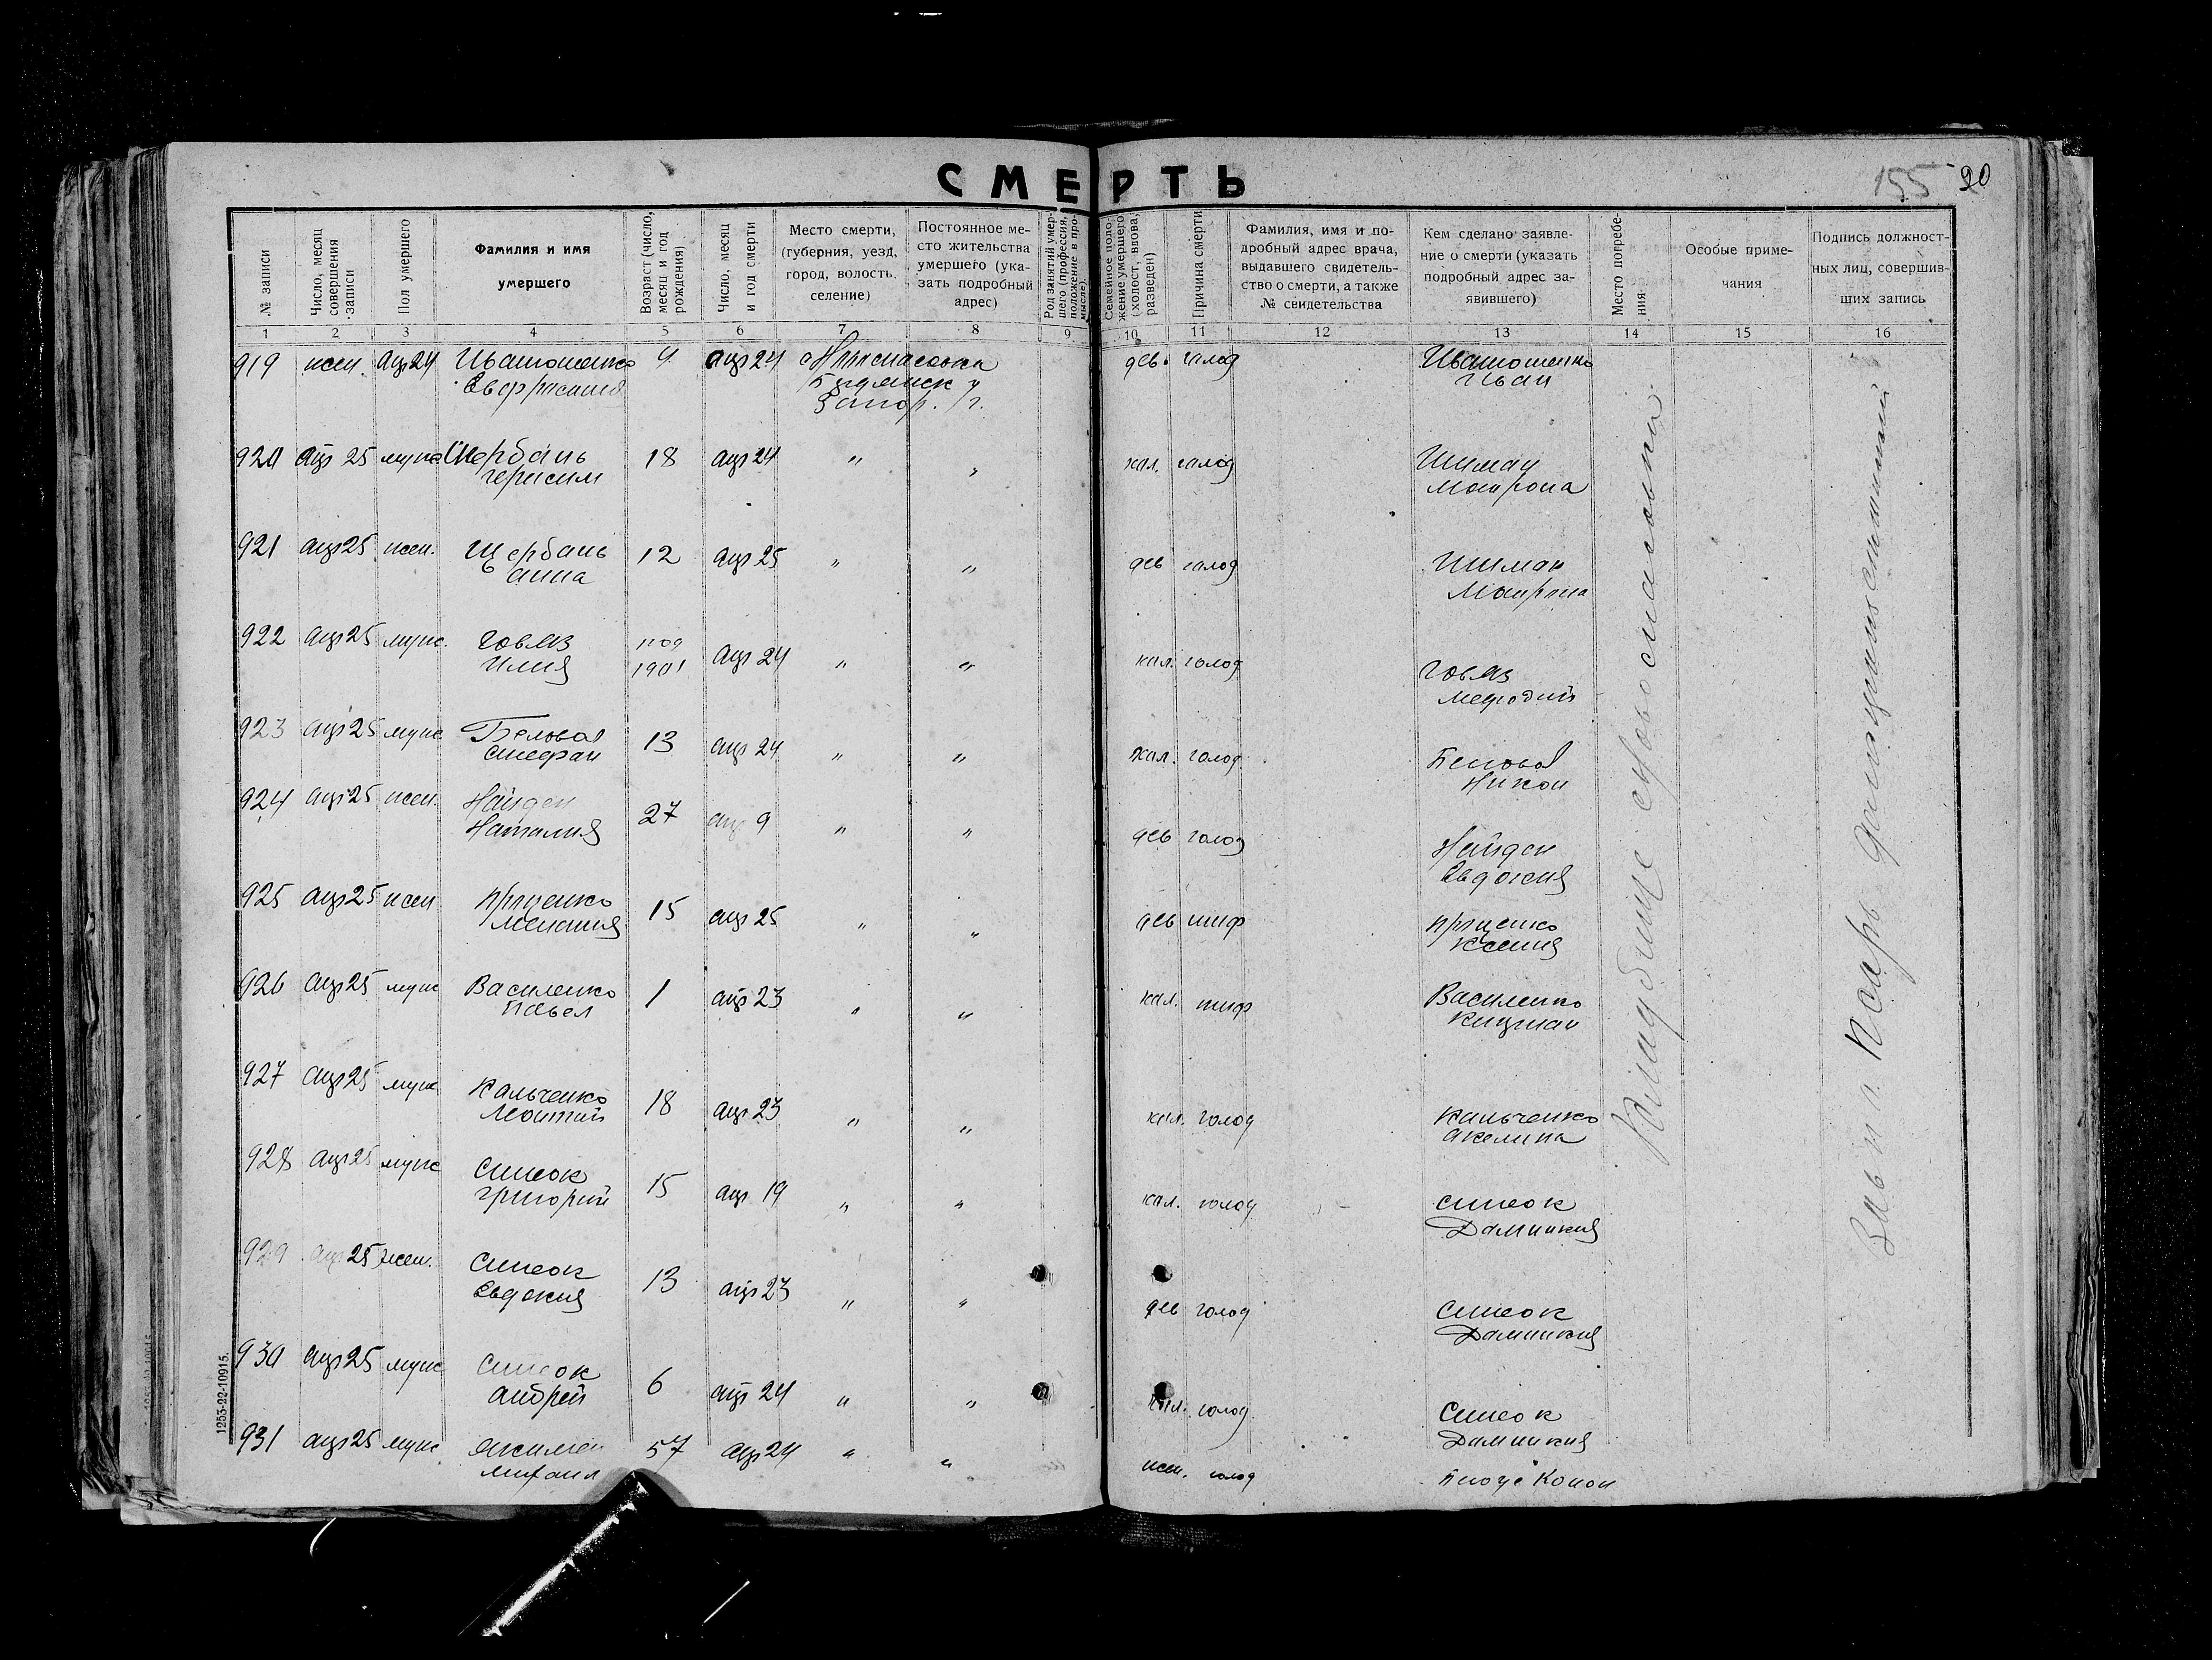 СМЕРТЬ
155 90
№ записи
Число, месяц совершения записи
Пол умершего
Фамилия и имя умершего
Возраст (число, месяц и год рождения)
Число, месяц и год смерти
Место смерти, (губерния, уезд, город, волость. селение)
Постоянное место жительства умершего (указать подробный адрес)
Род занятий умершего (профессия, положение в промысле).
Семейное положение умершего (холост, вдова, разведен)
Причина смерти
Фамилия, имя и подробный адрес врача, выдавшего свидетельство о смерти, а также № свидетельства
Кем сделано заявление о смерти (указать подробный адрес заявившего)
Место погребения
Особые примечания
Подпись должностных лиц, совершивших запись
1 2 3 4 5 6 7 8 9 10 11 12 13 14 15 16
919 жен. апр 24 Ивашошенко 4 апр 24 дев. голод Ивашошенко
Иван
Запор. г.
920 апр 25 муж Щербань 18 апр 24 " " хол. голод Шиман
Герасим Матрона
921 апр 25 жен. Щербань 12 апр 25 " " дев голод Шиман
Анна Матрона
922 апр 25 муж. Говяз 1901 апр 24 " " хол. голод Говяз
Илия Мефодий
923 апр 25 муж 13 апр 24 " " хол. голод
Стефан Никон
924 апр 25 жен. Найден 27 апр 9 " " дев голод Найден
Наталия Евдокия
925 апр 25 жен Проценко 15 апр 25 " " дев тиф Проценко
Мелания Ксения
926 апр 25 муж Василенко 1 апр 23 " " хол. тиф Василенко
Павел
927 апр 25 муж Кальченко 18 апр 23 " " хол. голод Кальченко
Акелина
928 апр 25 муж Синеок 15 апр 19 " " хол. голод Синеок
Григорий Дамникия
929 апр 25 жен. Синеок 13 апр 23 " " дев голод Синеок
Евдокия Дамникия
930 апр 25 муж Синеок 6 апр 24 " " хол. голод Синеок
Андрей Дамникия
931 апр 25 муж 57 апр 24 " " жен. голод Конон
Михаил
Кладбище Новоспасовки
Зав п. п. Писарь
1253-22-10915.